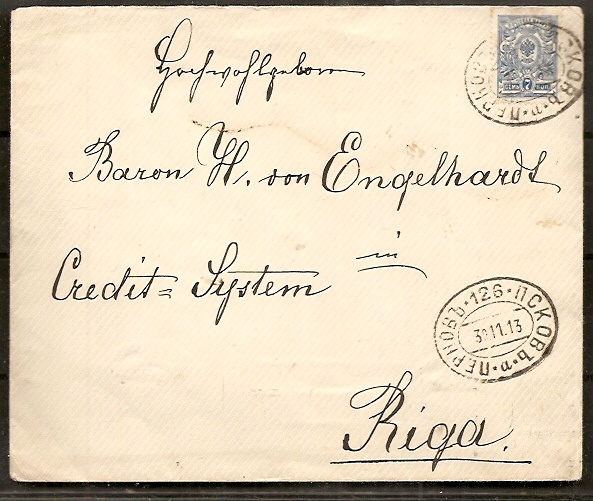 Hochwohlgeboren
Baron H. von Engelhardt
Credit=System in
Riga.
ПСКОВЪ • п • ПЕРНОВЪ
7
СЕМЬ КОП
ПЕРНОВЪ • 126 • ПСКОВЪ • п •
30 11.13